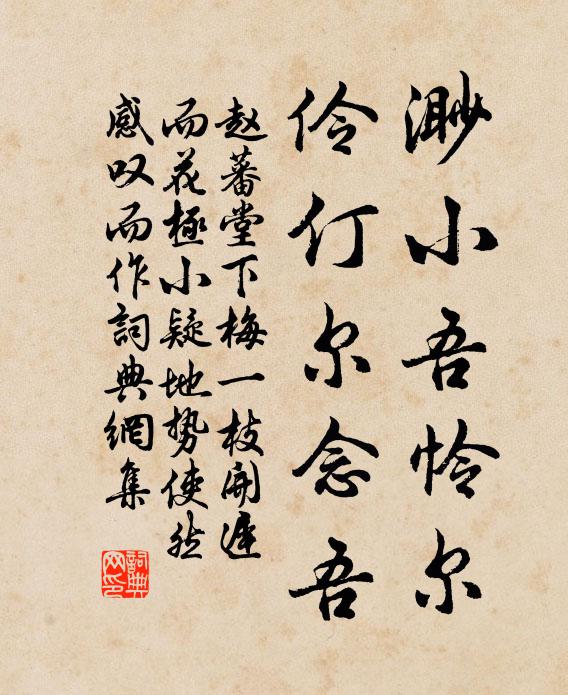 渺小吾怜尔
伶仃尔念吾
赵蕃堂下梅一枝开迟
而花極小疑地势使然
感叹而作詞典網集
詞典网印